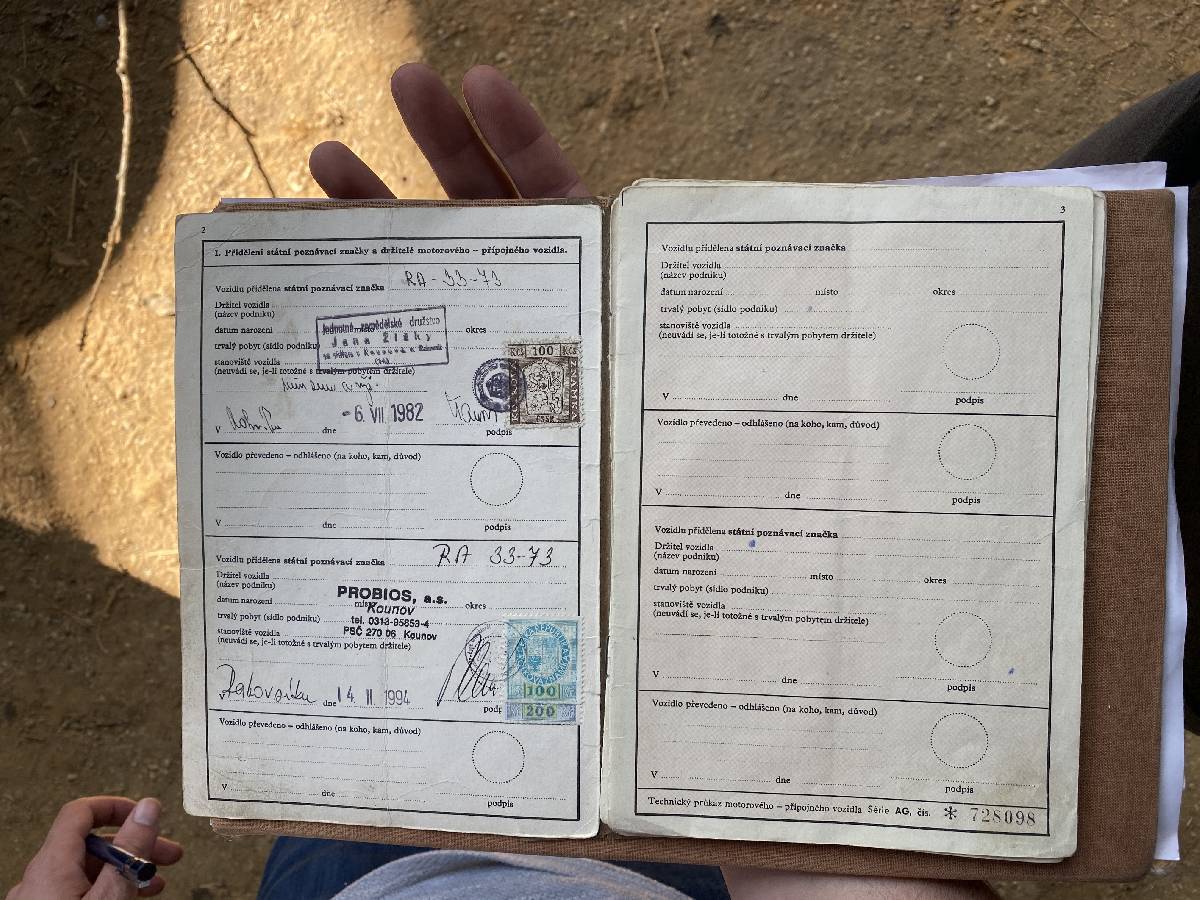 2
I. Přidělení státní poznávací značky a držitelé motorového – přípojného vozidla.
Vozidlu přidělena státní poznávací značka RA-33-73
Držitel vozidla
(název podniku)
Jednotné zemědělské družstvo
datum narození okres
Jana Žižky
trvalý pobyt (sídlo podniku)
stanoviště vozidla
(neuvádí se, je-li totožné s trvalým pobytem držitele)
KČS 100 KČS
V dne -6 VII 1982
podpis
Vozidlo převedeno – odhlášeno (na koho, kam, důvod)
V dne
podpis
Vozidlu přidělena státní poznávací značka RA 33-73
Držitel vozidla
(název podniku)
PROBIOS, a.s.
datum narození místo okres
Kounov
trvalý pobyt (sídlo podniku) tel. 0313-95853-4
stanoviště vozidla PSČ 270 06 Kounov
(neuvádí se, je-li totožné s trvalým pobytem držitele)
100
V dne 14. II 1994
podpis
200
Vozidlo převedeno – odhlášeno (na koho, kam, důvod)
V dne
podpis
3
Vozidlu přidělena státní poznávací značka
Držitel vozidla
(název podniku)
datum narození místo okres
trvalý pobyt (sídlo podniku)
stanoviště vozidla
(neuvádí se, je-li totožné s trvalým pobytem držitele)
V dne
podpis
Vozidlo převedeno – odhlášeno (na koho, kam, důvod)
V dne
podpis
Vozidlu přidělena státní poznávací značka
Držitel vozidla
(název podniku)
datum narození místo okres
trvalý pobyt (sídlo podniku)
stanoviště vozidla
(neuvádí se, je-li totožné s trvalým pobytem držitele)
V dne
podpis
Vozidlo převedeno – odhlášeno (na koho, kam, důvod)
V dne
podpis
Technický průkaz motorového – přípojného vozidla Série AG, čís. * 728098